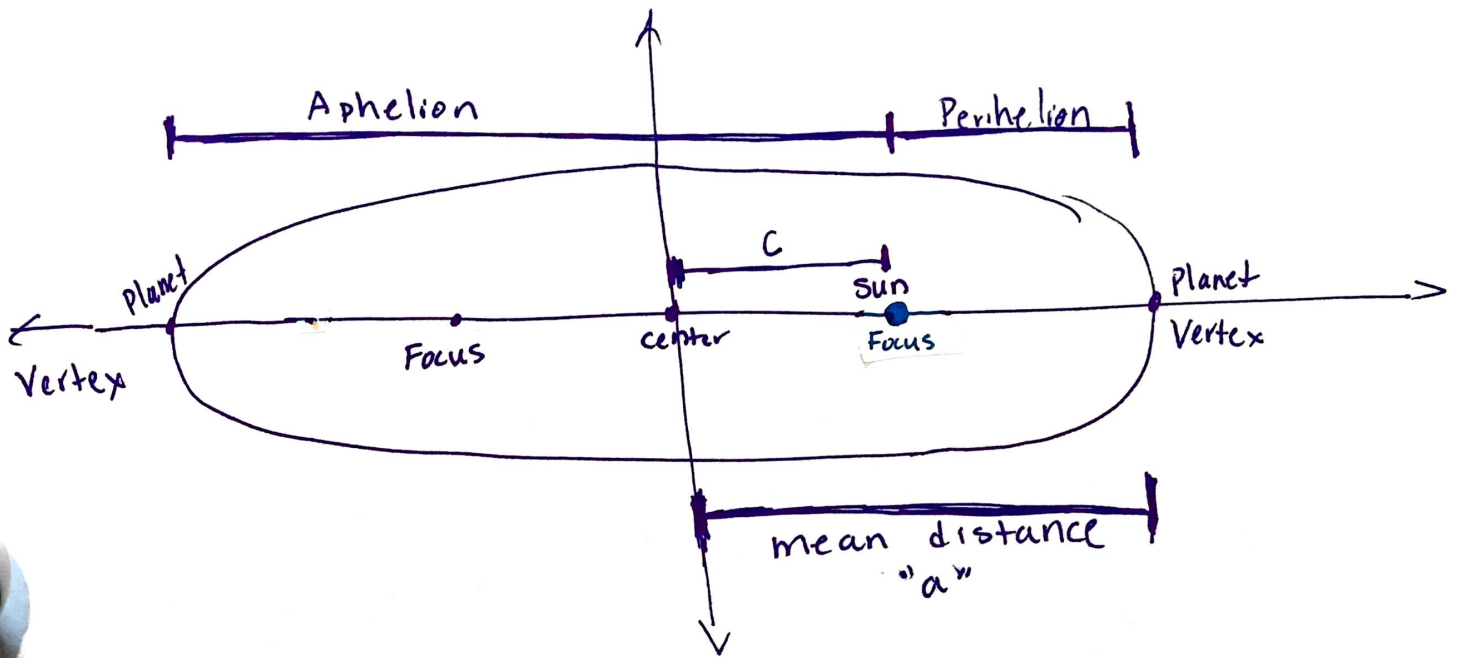 Aphelion
Perihelion
C
Planet
Sun
Planet
Focus
center
Focus
Vertex
Vertex
mean distance
"a"